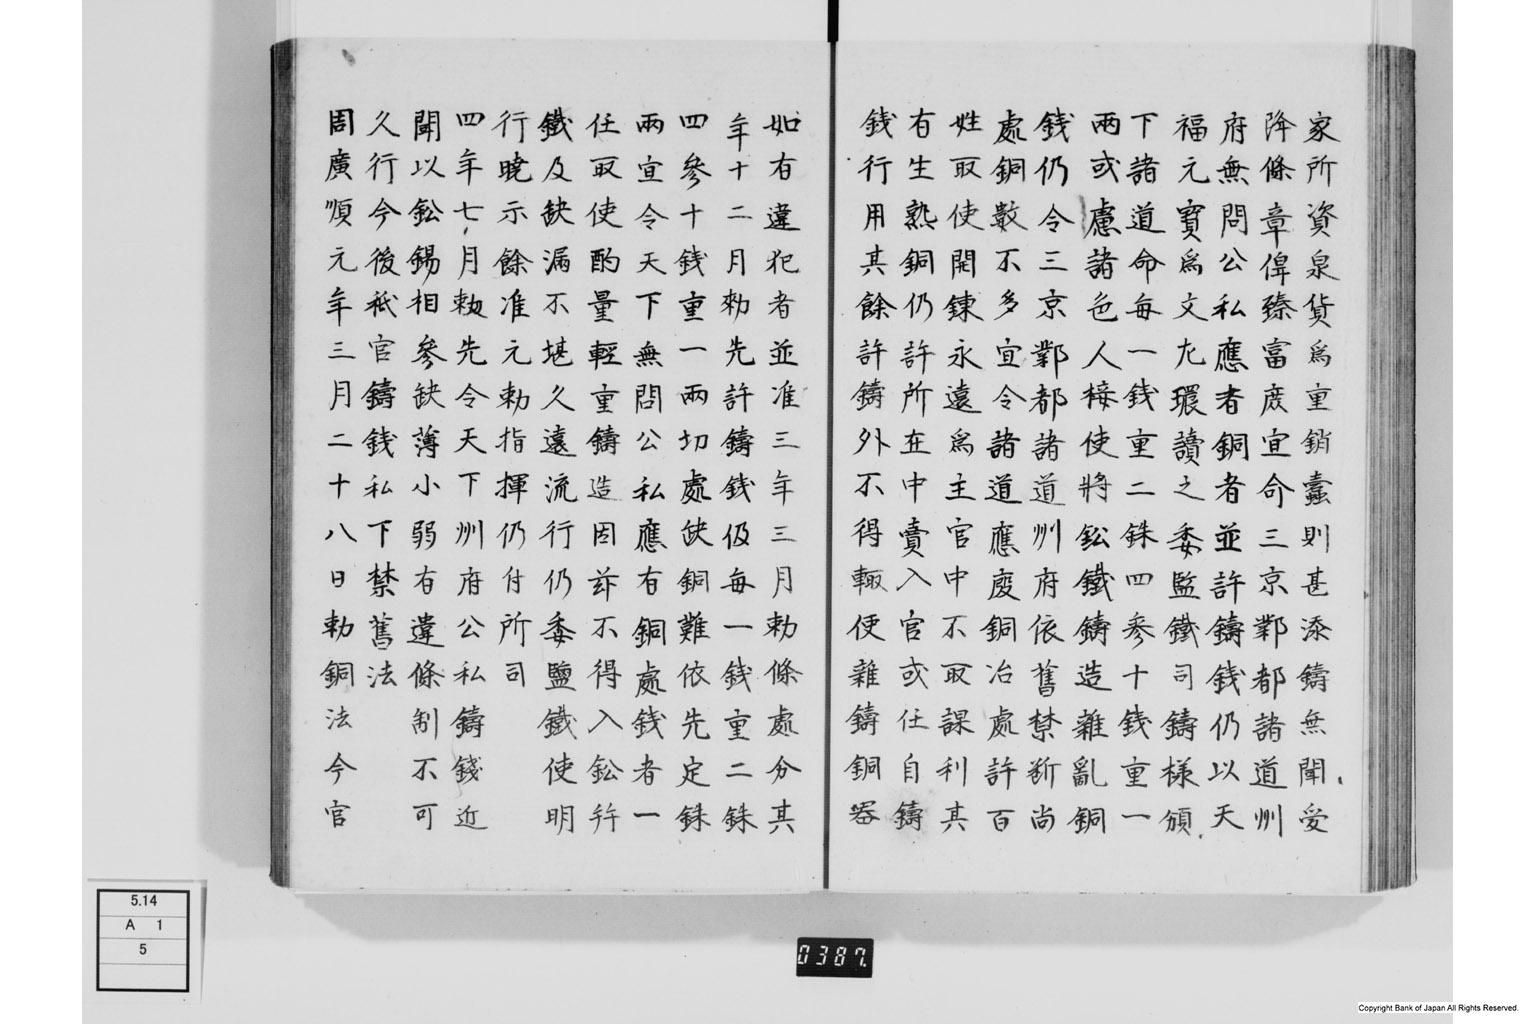 家所資泉貨爲重銷蠹則甚添鑄無聞爰
降條章俾臻富庶宜令三京鄴都諸道州
府無問公私應者銅者並許鑄錢仍以天
福元寶爲文左環讀之委監鐵司鑄樣頒
下諸道命每一錢重二銖四參十錢重一
兩或慮諸色人接使將鈆鐵鑄造雜亂銅
錢仍令三京鄴都諸道州府依舊禁斷尚
處銅數不多宜令諸道應廢銅冶處許百
姓取使開鍊永遠爲主官中不取課利其
有生熟銅仍許所在中賣入官或任自鑄
錢行用其餘許鑄外不得輙便雜鑄銅器
如有違犯者並准三年三月勅條處分其
年十二月勅先許鑄錢仍每一錢重二銖
四參十錢重一兩切處缺銅難依先定銖
兩宜令天下無問公私應有銅處錢者一
任取使酌量輕重鑄造因玆不得入鈆并
鐵及缺漏不堪久遠流行仍委鹽鐵使明
行曉示餘准元勅指揮仍付所司
四年七月勅先令天下州府公私鑄錢近
聞以鈆錫相參缺薄小弱有違條制不可
久行今後祇官鑄錢私下禁舊法
周廣順元年三月二十八日勅銅法今官
5.14
A 1
5
0387.
Copyright Bank of Japan All Rights Reserved.